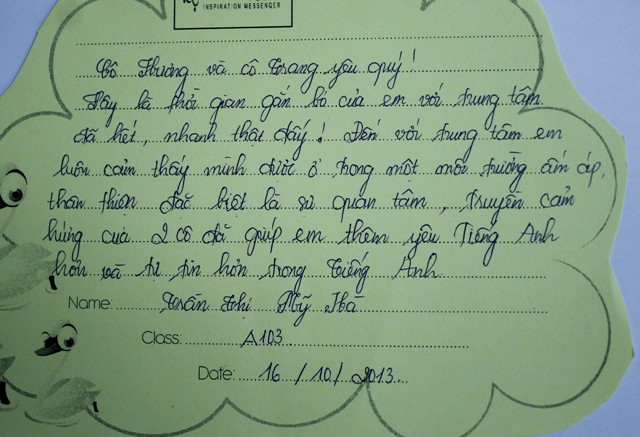 INSPIRATION MESSENGER
Cô Hương và cô Trang yêu quý!
Vậy là thời gian gắn bó của em với trung tâm
đã hết, nhanh thật đấy! Đến với trung tâm em
luôn cảm thấy mình được ở trong một môi trường ấm áp,
thân thiện đặc biệt là sự quan tâm, truyền cảm
hứng của 2 cô đã giúp em thêm yêu Tiếng Anh
hơn và tự tin hơn trong Tiếng Anh
Name: Trần Thị Mỹ Hà
Class: A103
Date: 16/10/2013